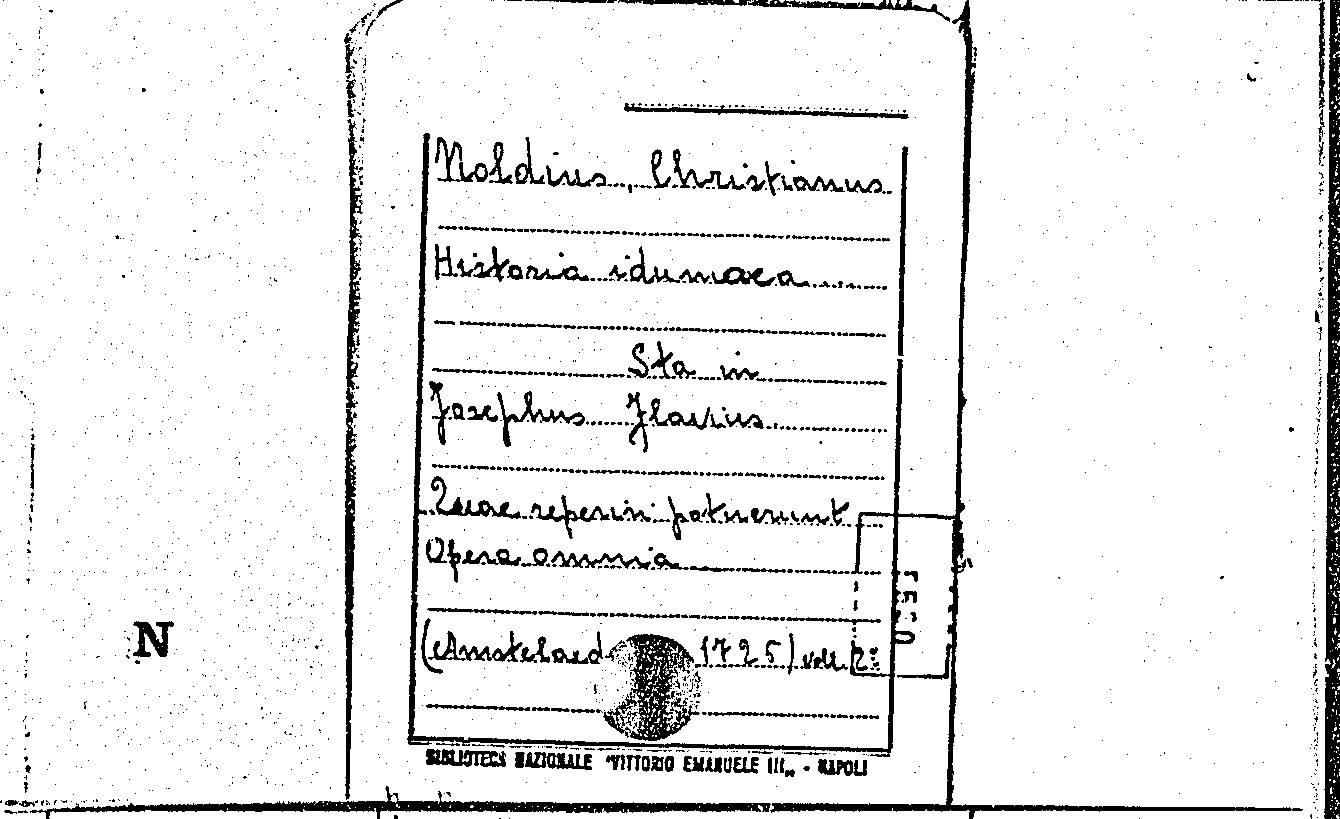 Noldius, Christianus
Historia idumaea
Sta in
Josephus Flavius
Quae reperiri potuerunt
Opera omnia
(Amstelaed 1725) voll. 2º
N
BIBLIOTECA NAZIONALE "VITTORIO EMANUELE III„ - NAPOLI